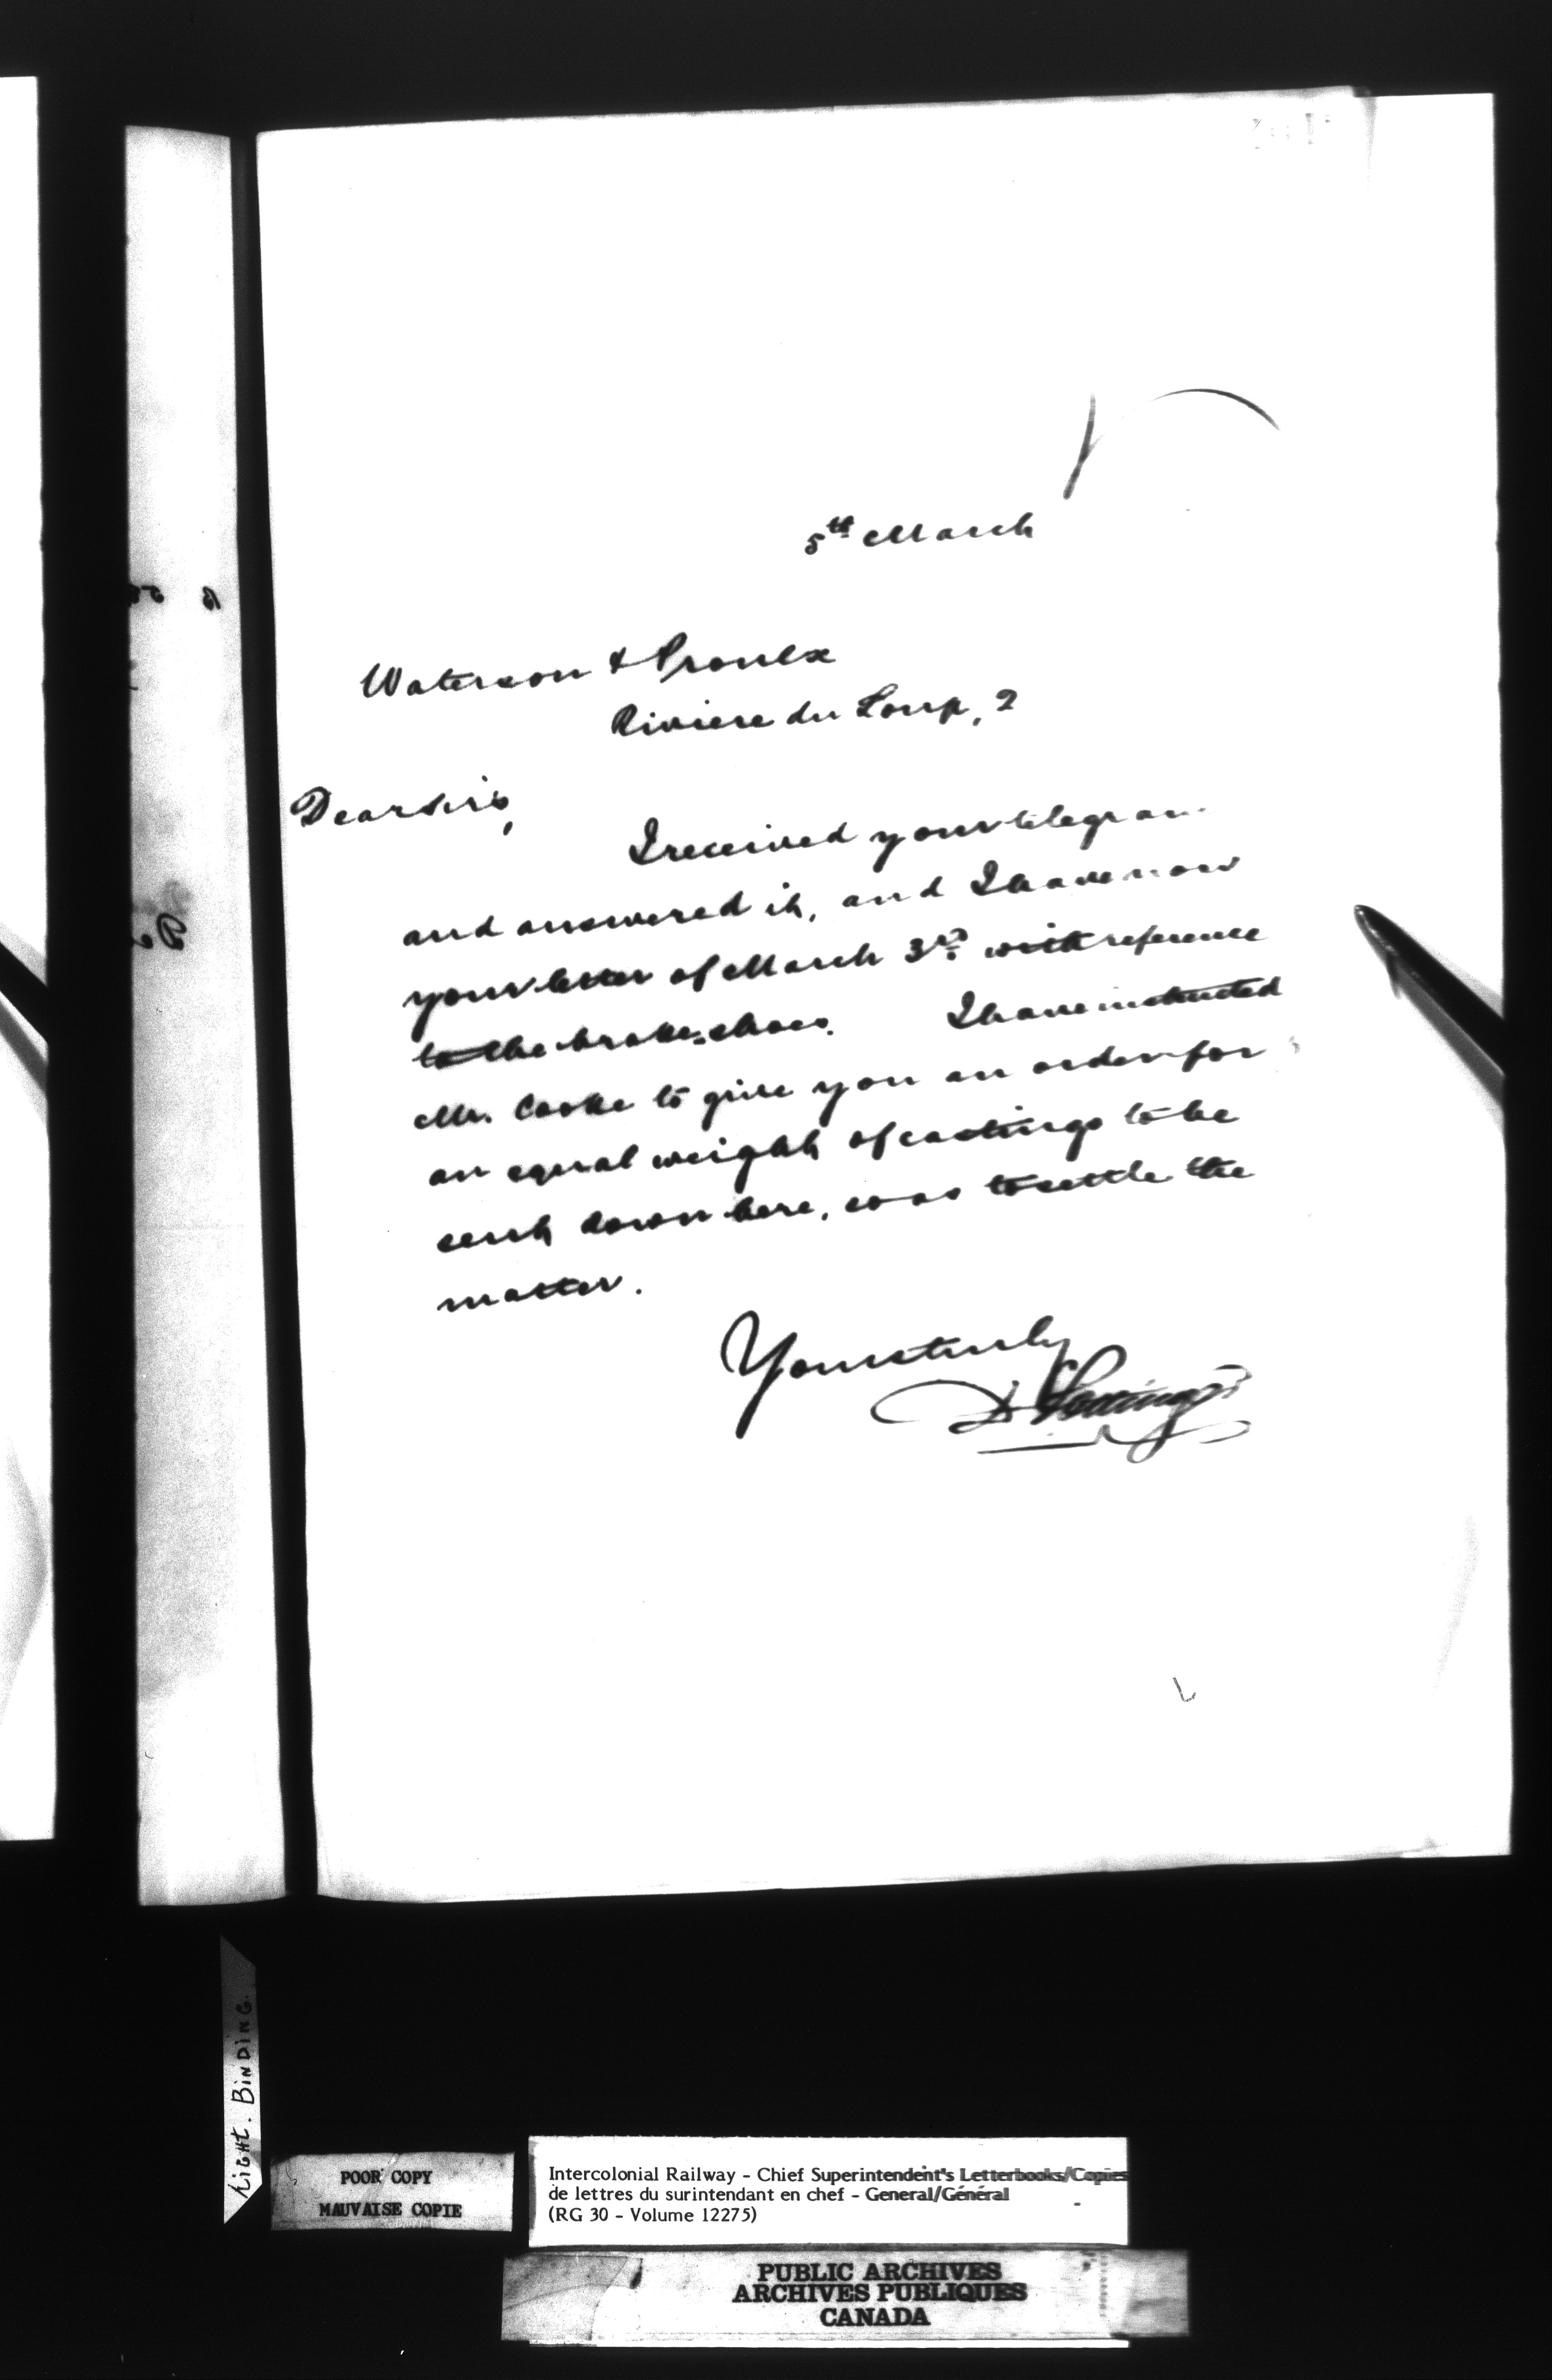 5th March
Waterson & Proulx
Riviere du Loup, 2
Dear Sirs,
I received your telegram
and answered it, and I have now
your letter of March 3rd with reference
to the brake-shoes. I have instructed
Mr. Cooke to give you an order for
an equal weight of castings to be
sent down here, so as to settle the
matter.
Yours truly
D Pottinger
TIGHT. BINDING.
POOR COPY
MAUVAISE COPIE
Intercolonial Railway - Chief Superintendent's Letterbooks/Copies
de lettres du surintendant en chef - General/Général
(RG 30 - Volume 12275)
PUBLIC ARCHIVES
ARCHIVES PUBLIQUES
CANADA